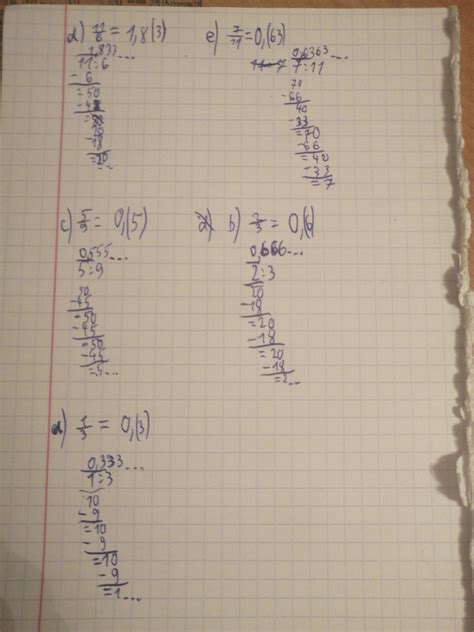 d) 11/6 = 1,8(3)
1,833...
11:6
- 6
=50
-48
=20
-18
=20...
e) 7/11 = 0,(63)
0,6363...
7:11
70
-66
40
-33
=70
-66
=40
-33
=7
c) 5/9 = 0,(5)
0,555...
5:9
50
-45
=50
-45
=50
-45
=5...
b) 2/3 = 0,(6)
0,666...
2:3
20
-18
=20
-18
=20
-18
=2...
a) 1/3 = 0,(3)
0,333...
1:3
10
- 9
=10
- 9
=10
- 9
=1...